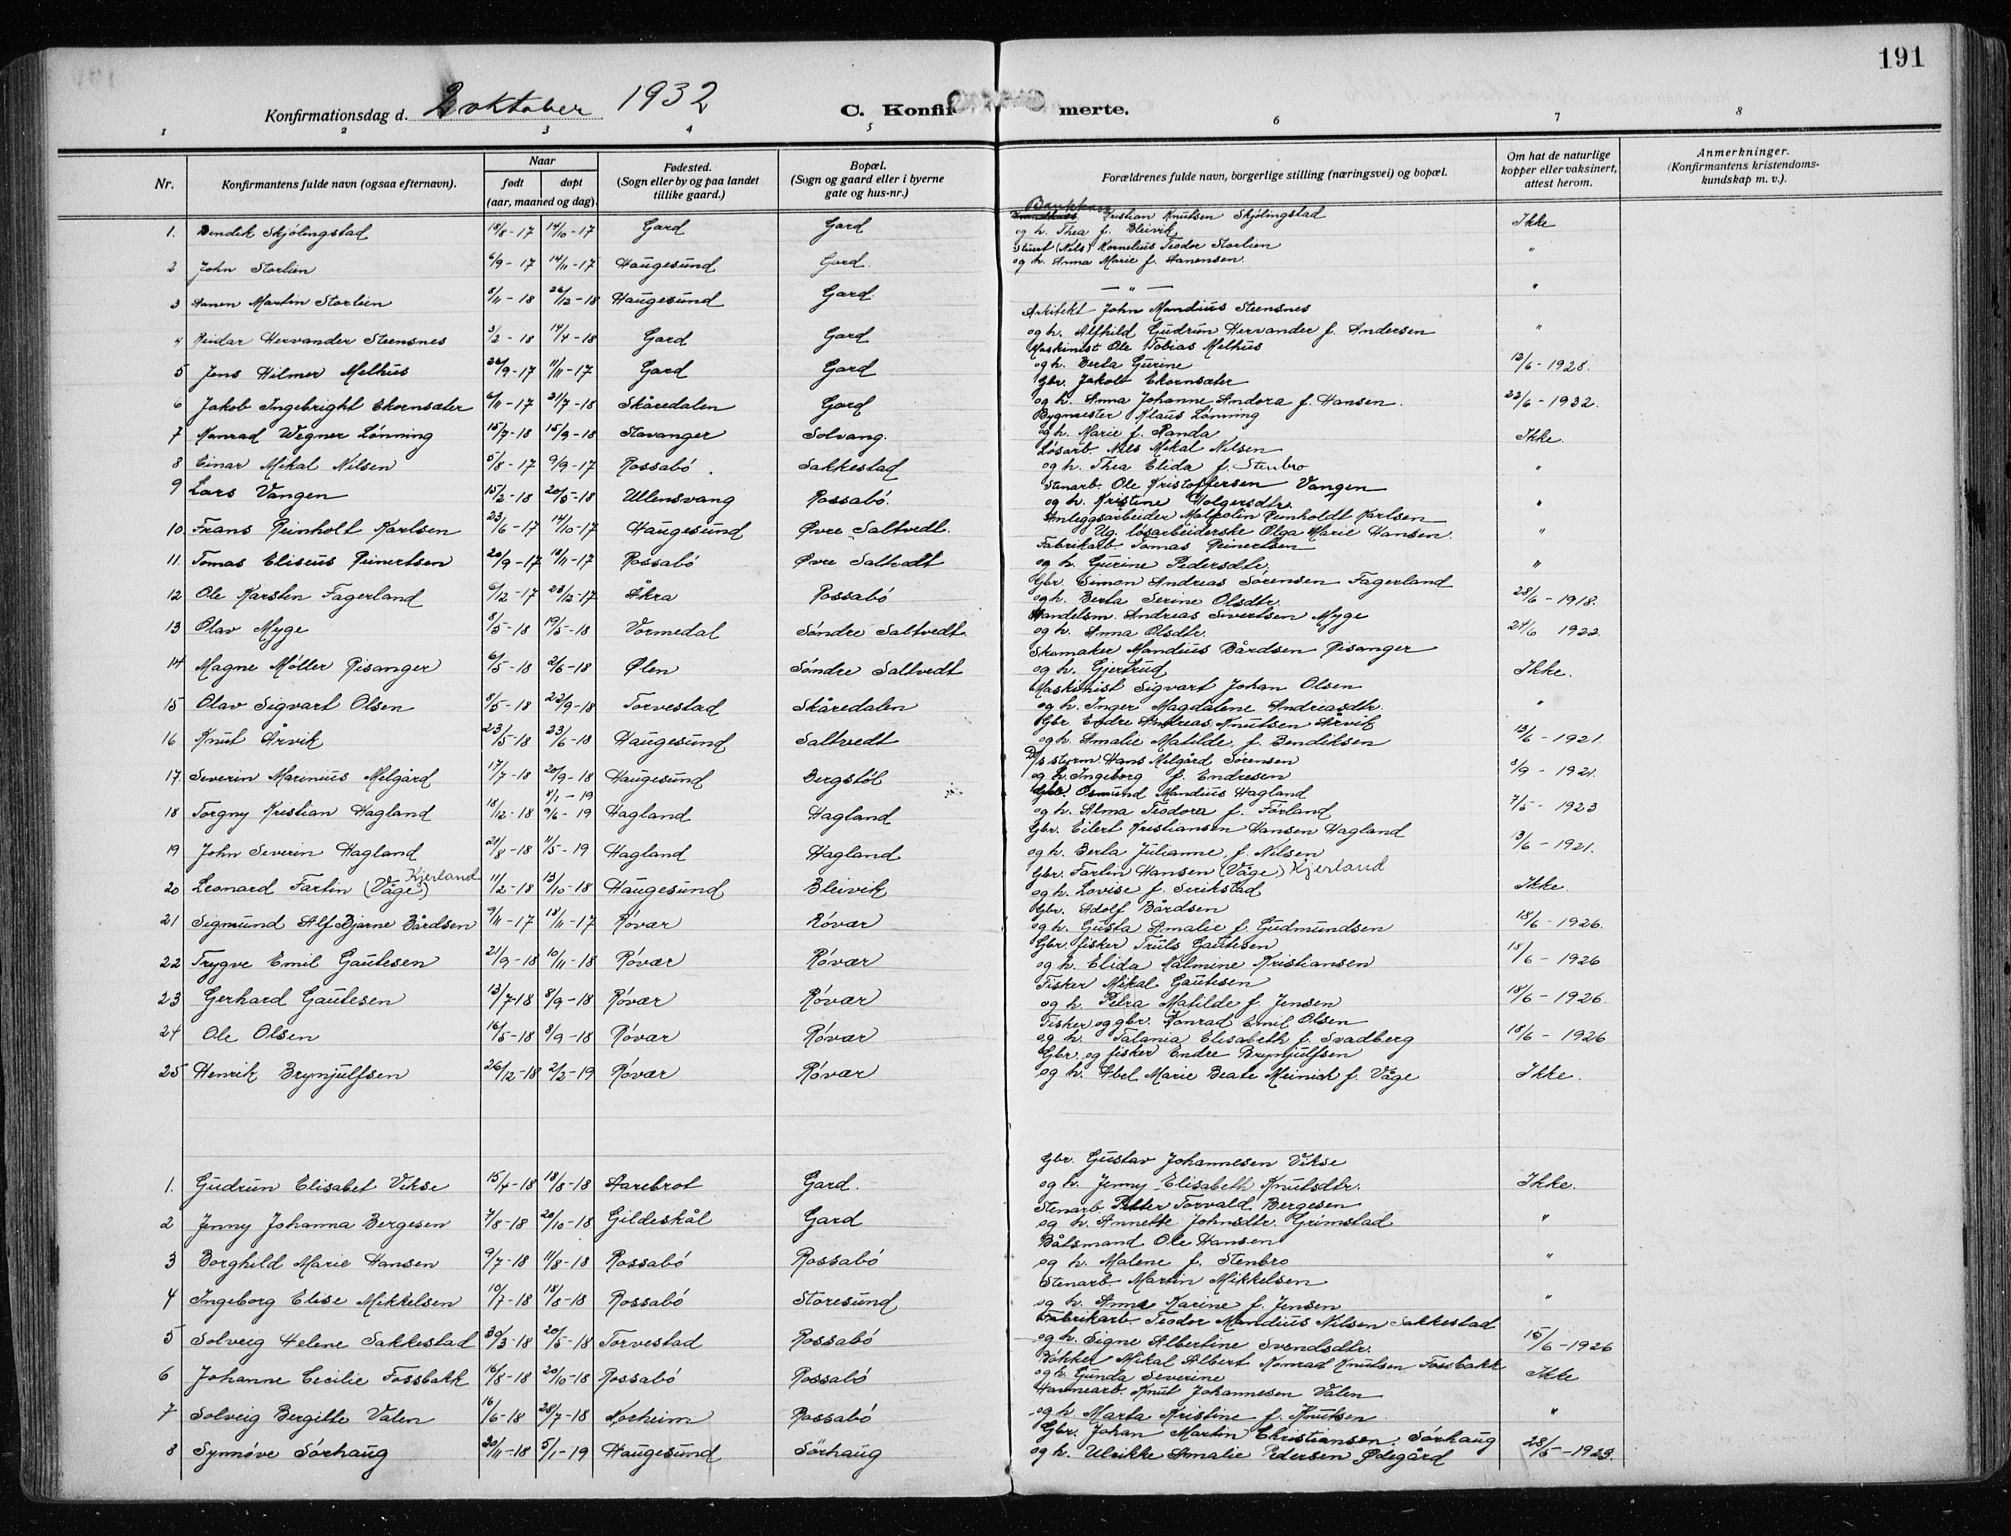 191
Konfirmationsdag d. 2 oktober 1932
C. Konfirmerte.
1 2 3 4 5 6 7 8
Nr. Konfirmantens fulde navn (ogsaa efternavn). Naar født døpt (aar, maaned og dag). Fødested. (Sogn eller by og paa landet tillike gaard.) Bopæl. (Sogn og gaard eller i byerne gate og hus-nr.) Forældrenes fulde navn, borgerlige stilling (næringsvei) og bopæl. Om hat de naturlige kopper eller vaksinert, attest herom. Anmerkninger. (Konfirmantens kristendomskundskap m. v.).
1. Bendik Skjölingstad 18/8-17 14/10-17 Gard Gard Kristian Knutsen Skjölingstad og h. Thea f. Bleivik Ikke
2 John Storlien 6/9-17 14/11-17 Haugesund Gard. Stuert (Nils) Kornelius Teodor Storlien og h. Anna Marie f. Aanensen. "
3 Aanen Martin Storlien 8/11-18 26/12-18 Haugesund Gard. — " — "
4 Reidar Hervander Steensnes 3/2-18 14/4-18 Gard Gard Arkitekt John Mandius Steensnes og h. Alfhild Gudrun Hervander f. Andersen "
5 Jens Hilmer Melhus 26/9-17 11/11-17 Gard Gard Maskinist Ole Tobias Melhus og h. Berta Gurine 12/6-1928.
6 Jakob Ingebright Ekornsæter 6/11-17 21/7-18 Skåredalen Gard Gbr. Jakob Ekornsæter og h. Anna Johanne Andora f. Hansen. 22/6-1932.
7 Konrad Wegner Lønning 15/7-18 15/9-18 Stavanger Solvang. Bygmester Klaus Lønning og h. Marie f. Randa Ikke.
8 Einar Mikal Nilsen 5/8-17 9/9-17 Rossabö. Sakkestad Løsarb. Nils Mikal Nilsen og h. Thea Elida f. Stenbro "
9 Lars Vangen 15/2-18 20/5-18 Ullensvang Rossabö. Stenarb. Ole Kristoffersen Vangen og h. Kristine Holgersdtr. "
10. Frans Reinholt Karlsen 23/6-17 14/10-17 Haugesund Øvre Saltvedt. Anleggsarbeider Malfolin Reinholdt Karlsen Ug. løsarbeiderske Olga Marie Hansen. "
11. Tomas Eliseus Reinertsen 20/9-17 18/11-17 Rossabö Øvre Saltvedt Fabrikarb. Tomas Reinertsen og h. Gurine Pedersdtr. "
12 Ole Karsten Fagerland 6/12-17 23/12-17 Åkra Rossabö Gbr. Simon Andreas Sörensen Fagerland og h. Berta Serine Olsdtr. 28/6-1918.
13 Olav Myge 8/5-18 19/5-18 Vormedal Söndre Saltvedt. Handelsm. Andreas Sivertsen Myge og h. Anna Olsdtr. 24/6 1922.
14 Magne Møller Risanger 6/5-18 2/6-18 Ølen Söndre Saltvedt Skomaker Mandius Bårdsen Risanger og h. Gjertrud Ikke.
15 Olav Sigvart Olsen 8/5-18 22/9-18 Torvestad Skåredalen Maskinist Sigvart Johan Olsen og h. Inger Magdalene Andreasdtr. "
16 Knut Årvik 23/5-18 23/6-18 Haugesund Saltvedt Gbr. Endre Andreas Knutsen Årvik og h. Amalie Matilde f. Bendiksen 13/6-1921.
17. Severin Marinius Melgård 17/7-18 20/9-18 Haugesund Bergstöl D/s styrm. Hans Melgård Sørensen og h. Ingeborg f. Endresen 8/9-1921.
18 Torgny Kristian Hagland 18/12-18 9/6-19 Hagland Hagland Gbr. Osmund Mandius Hagland og h. Alma Teodora f. Førland 7/5-1923
19 John Severin Hagland 21/8-18 11/5-19 Hagland Hagland Gbr. Eilert Kristiansen Hansen Hagland og h. Berta Julianne f. Nilsen 13/6-1921.
20 Leonard Tarlin (Våge) Kjerland 11/2-18 13/10-18 Haugesund Bleivik Gbr. Tarlin Hansen (Våge) Kjerland og h. Lovise f. Serikstad Ikke.
21 Sigmund Alf Bjarne Bårdsen 9/11-17 18/11-17 Rövær Rövær Gbr. Adolf Bårdsen og h. Gusta Amalie f. Gudmundsen 18/6-1926.
22 Trygve Emil Gautesen 21/9-18 10/11-18 Rövær Rövær Gbr. fisker Truls Gautesen og h. Elida Nalmine Kristiansen 18/6-1926
23 Gerhard Gautesen 13/7-18 8/9-18 Rövær Rövær Fisker Mikal Gautesen og h. Petra Matilde f. Jensen 18/6-1926.
24 Ole Olsen 16/5-18 8/9-18 Rövær Rövær Fisker og gbr. Konrad Emil Olsen og h. Talania Elisabeth f. Svadberg 18/6-1926
25 Henrik Brynjulfsen 26/12-18 2/2-19 Rövær Rövær Gbr. og fisker Endre Brynjulfsen og h. Abel Marie Beate Meinich f. Våge Ikke.
1. Gudrun Elisabet Vikse 15/4-18 18/8-18 Aarebrot Gard. Gbr. Gustav Johannesen Vikse og h. Jenny Elisabeth Knutsdtr. Ikke.
2 Jenny Johanna Bergesen 7/8-18 20/10-18 Gildeskål Gard Stenarb. Petter Torvald Bergesen og h. Annette Johnsdtr. Grimstad "
3 Borghild Marie Hansen 9/7-18 11/8-18 Rossabö Rossabö Båtsmand Ole Hansen og h. Malene f. Stenbro "
4 Ingeborg Elise Mikkelsen 10/7-18 18/8-18 Rossabö Storesund Stenarb. Martin Mikkelsen og h. Anna Karine f. Jensen "
5 Solveig Helene Sakkestad 30/3-18 20/5-18 Torvestad Rossabö Fabrikarb. Teodor Mandius Nilsen Sakkestad og h. Signe Albertine Svendsdtr. 15/6-1926
6 Johanne Cecilie Fossbakk 16/8-18 20/10-18 Rossabö Rossabö Bökker Mikal Albert Konrad Knutsen Fossbakk og h. Gunda Severine Ikke
7 Solveig Bergitte Valen 16/6-18 28/7-18 Norheim Rossabö Havnearb. Knut Johannesen Valen og h. Marta Kristine f. Knutsen. "
8 Synnöve Sörhaug 20/11-18 5/1-19 Haugesund Sörhaug Gbr. Johan Martin Christiansen Sörhaug og h. Ulrikke Amalie Pedersen Ødegård 28/5-1923.